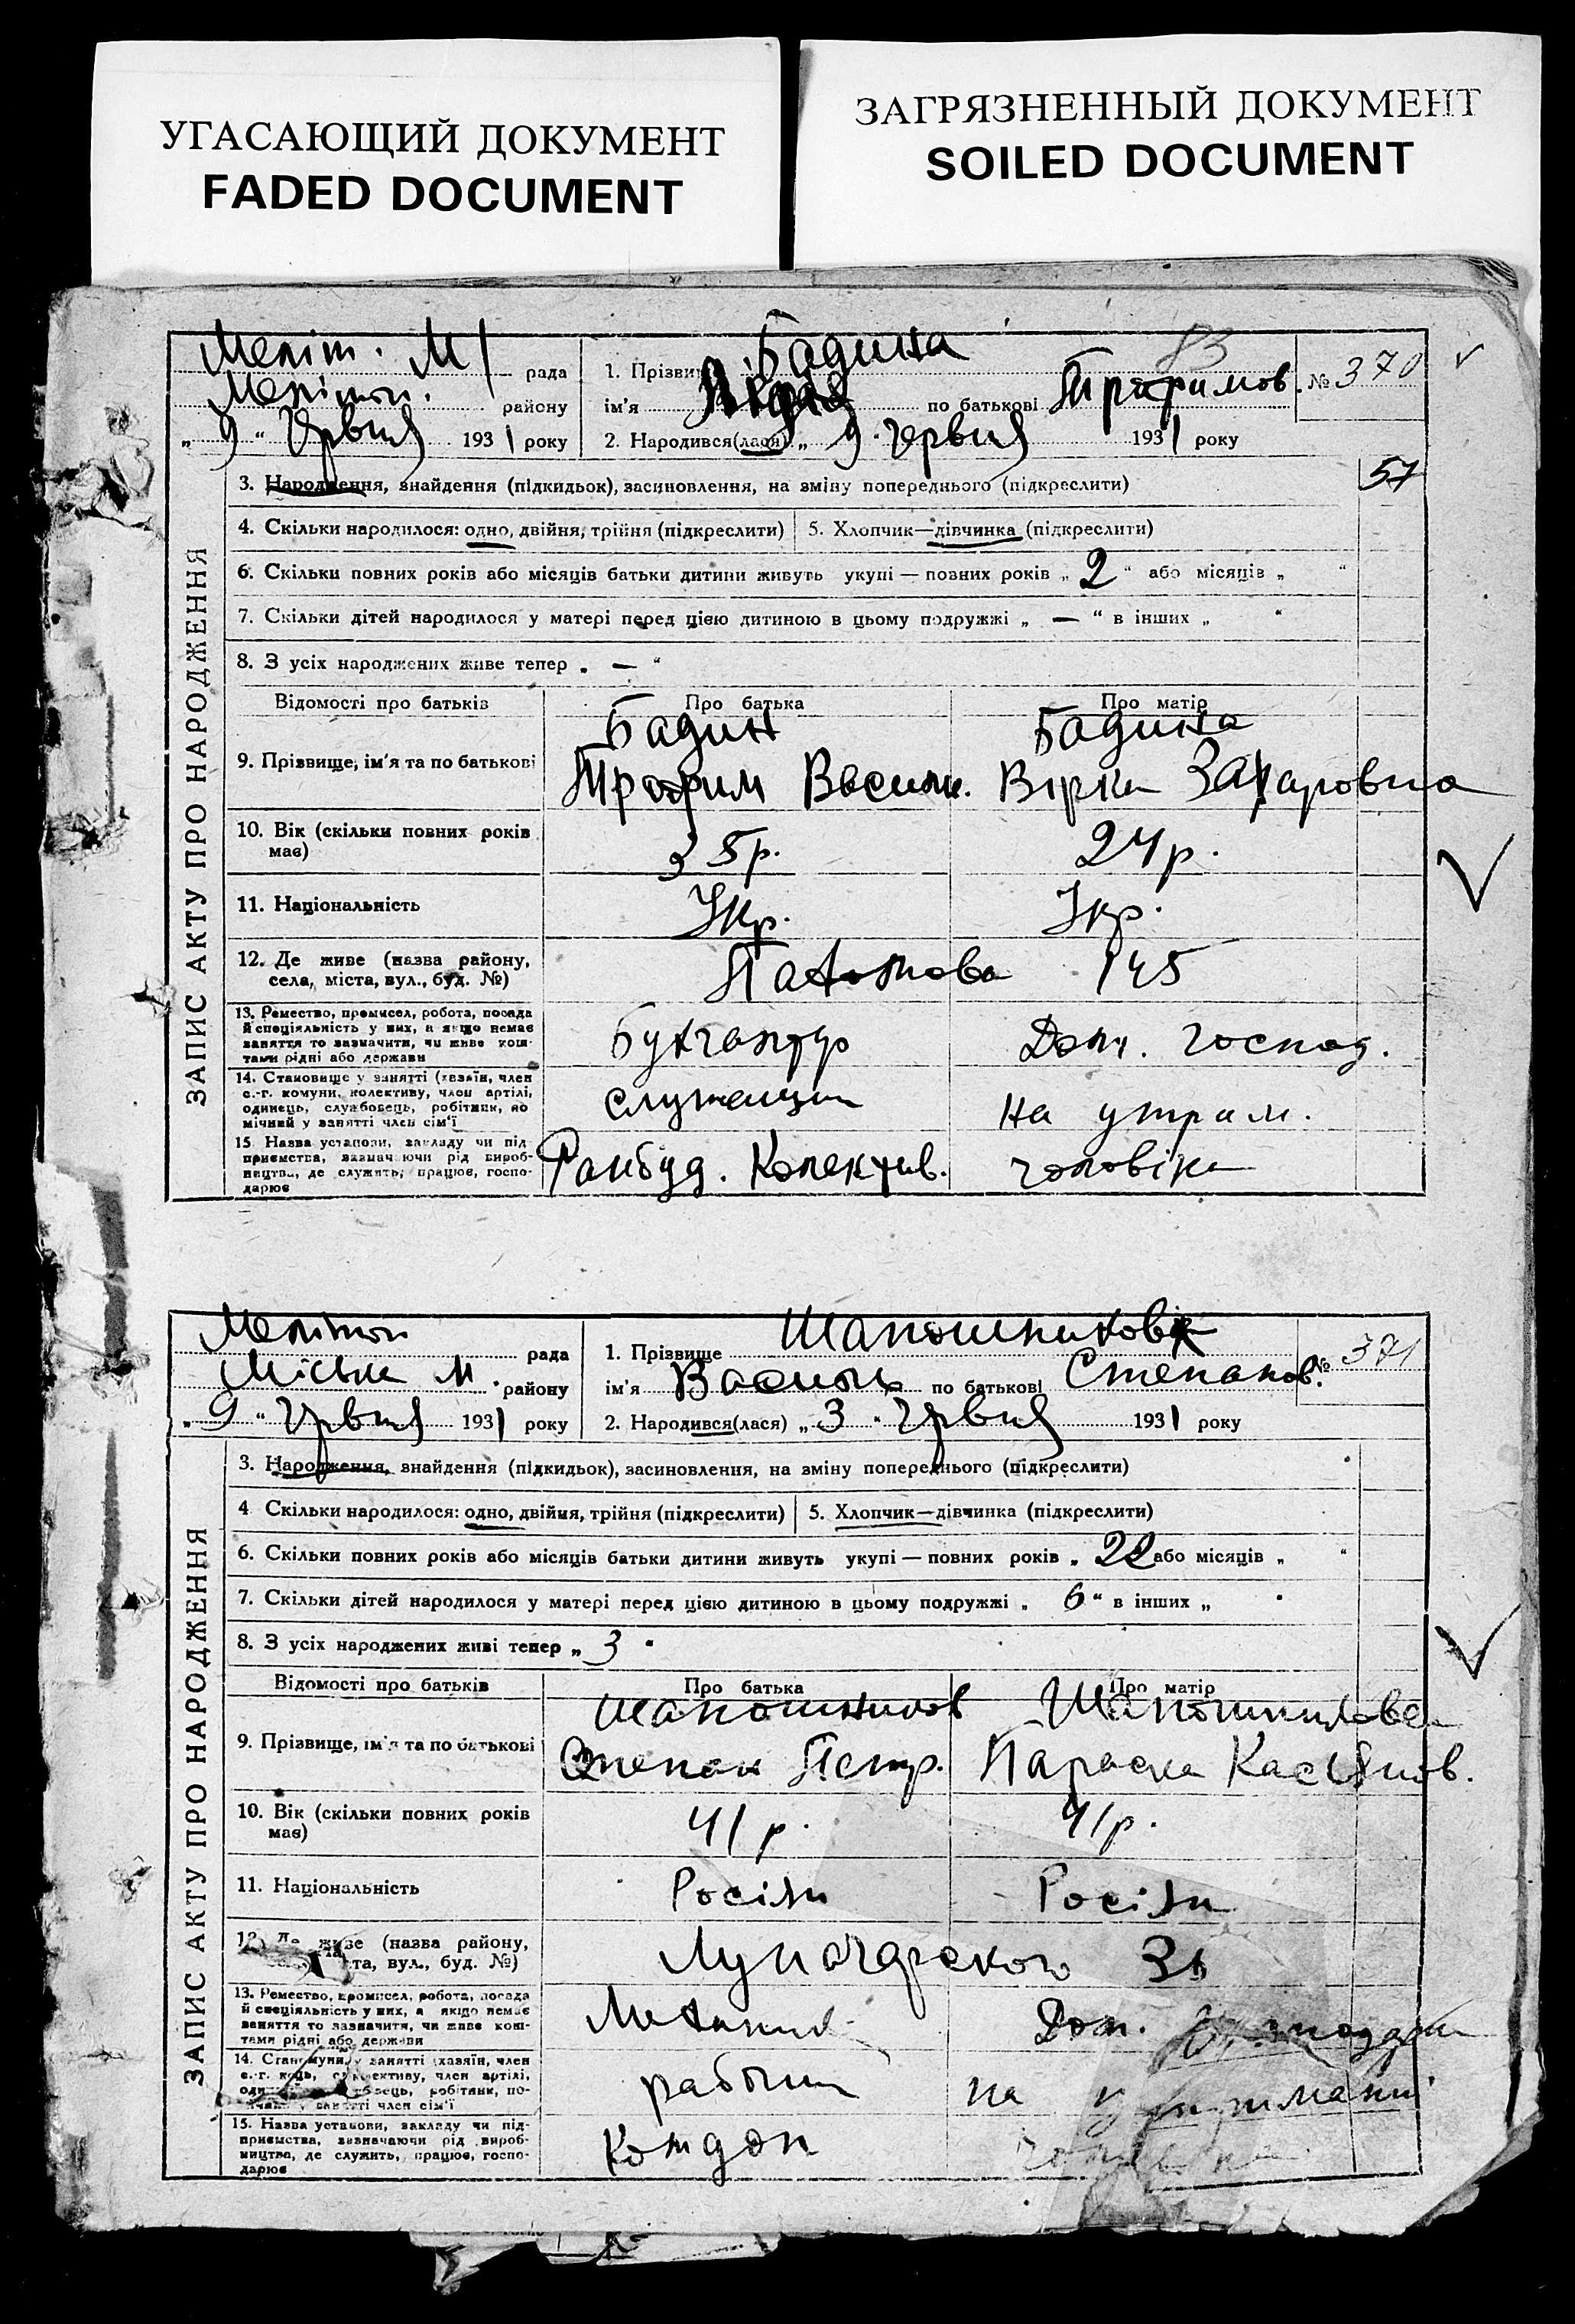 УГАСАЮЩИЙ ДОКУМЕНТ
FADED DOCUMENT
ЗАГРЯЗНЕННЫЙ ДОКУМЕНТ
SOILED DOCUMENT
83
ЗАПИС АКТУ ПРО НАРОДЖЕННЯ
Меліт. М рада
Меліт. району
„ 9 “ Червня 1931 року
1. Прізвище Бадина
ім'я по батькові Трофимов. № 370
2. Народився(лася) „ 9 “ червня 1931 року
57
3. Народження, знайдення (підкидьок), засиновлення, на зміну попереднього (підкреслити)
4. Скільки народилося: одно, двійня, трійня (підкреслити) 5. Хлопчик—дівчинка (підкреслити)
6. Скільки повних років або місяців батьки дитини живуть укупі — повних років „ 2 “ або місяців „ “
7. Скільки дітей народилося у матері перед цією дитиною в цьому подружжі „ — “ в інших „ “
8. З усіх народжених живе тепер „ — “
Відомості про батьків Про батька Про матір
9. Прізвище, ім'я та по батькові
Бадин Бадина
Трофим Васил. Вірка Захаровна
10. Вік (скільки повних років має) 25р. 24р.
11. Національність Укр. Укр.
12. Де живе (назва району, села, міста, вул., буд. №) 145
13. Ремество, промисел, робота, посада й спеціяльність у них, а якщо немає заняття то зазначити, чи живе коштами рідні або держави
Бухгалтер Дом. господ.
14. Становище у занятті (хазяїн, член с.-г. комуни, колективу, член артілі, одинець, службовець, робітник, помічний у занятті член сім'ї
служащий на утрим.
15. Назва установи, закладу чи підприємства, зазначаючи рід виробництва, де служить, працює, господарює
Колектив. чоловіка
ЗАПИС АКТУ ПРО НАРОДЖЕННЯ
Меліт. рада
Міська М. району
„ 9 “ Червня 1931 року
1. Прізвище Шапошников
ім'я Василь по батькові Степанов. № 371
2. Народився(лася) „ 3 “ Червня 1931 року
3. Народження, знайдення (підкидьок), засиновлення, на зміну попереднього (підкреслити)
4 Скільки народилося: одно, двійня, трійня (підкреслити) 5. Хлопчик—дівчинка (підкреслити)
6. Скільки повних років або місяців батьки дитини живуть укупі — повних років „ 22 або місяців „ “
7. Скільки дітей народилося у матері перед цією дитиною в цьому подружжі „ 6 “ в інших „ “
8. З усіх народжених живі тепер „ 3 “
Відомості про батьків Про батька Про матір
9. Прізвище, ім'я та по батькові
Шапошников Шапошникова
Степан Петр. Параска Касіянов.
10. Вік (скільки повних років має) 41 р. 41р.
11. Національність Росіян Росіян
12. Де живе (назва району, міста, вул., буд. №) Луначарского
13. Ремество, промисел, робота, посада й спеціяльність у них, а якщо немає заняття то зазначити, чи живе коштами рідні або держави
Механик Дом.
14. занятті (хазяїн, член с.-г. член артілі, робітник, по- занятті член сім'ї
рабочий на утриманні
15. Назва установи, закладу чи підприємства, зазначаючи рід виробництва, де служить, працює, господарює